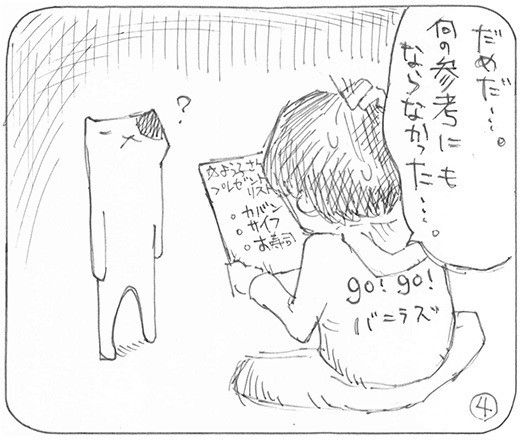 だめだ…。
何の参考にも
ならなかった……。
?
プレゼント
リスト
。カバン
。サイフ
。お寿司
go! go!
バニラズ
④